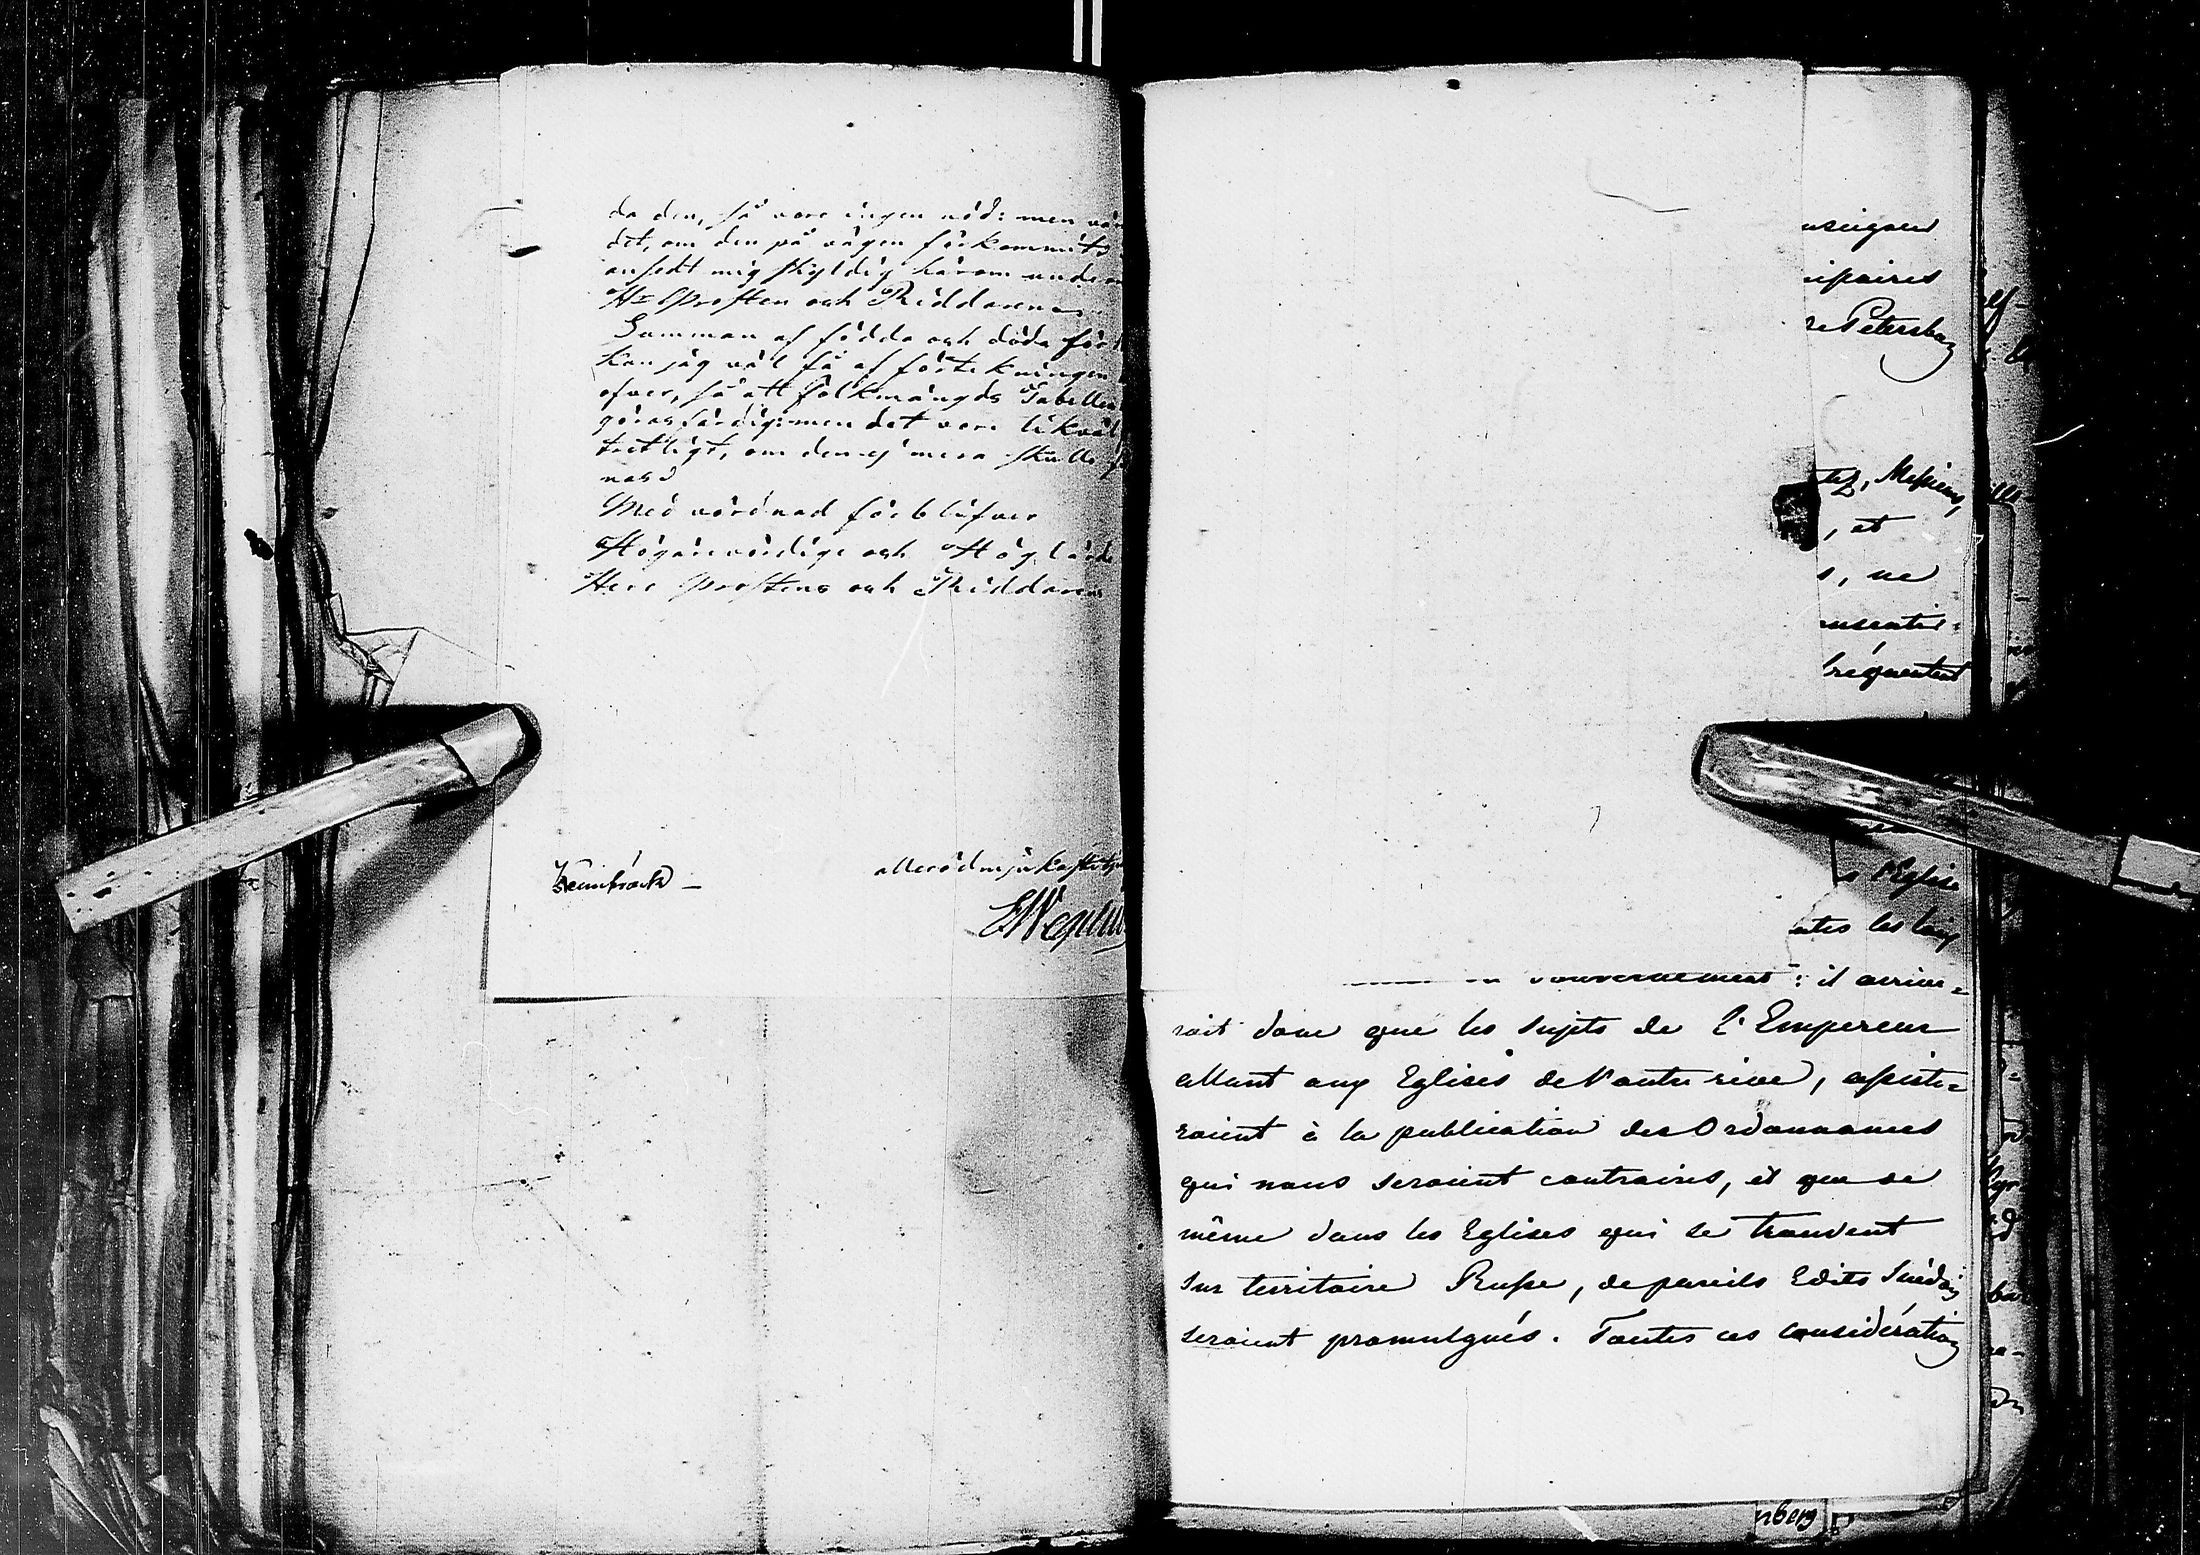 da den, så vore ingen nöd: men
det, om den på vägen förkommit,
ansedt mig skyldig härom
Hr Prosten och Riddaren
Summan af födda och döda för
kan jag väl få af förtekningen
öfver, så att folkmängds Tabellen
göras färdig: men det vore likväl
om den ej mera skulle
nas.
Med vördnad förblifver
Högärevördige och Höglärde
Herr Prostens och Riddarens
Kuinbäck
E Wegelius
nseigner
cipaires
de Petersburg
tez, Messieurs,
, et
s, ne
fréquentent
l'Eglise
utes les loix
gouvernement: il arrive=
roit donc que les Sujets de l'Empereur
allant aux Eglises de l'autre rive, assiste=
roient à la publication des Ordonnances
qui nous seroient contraires, et que de
même dans les Eglises qui se trouvent
sur territoire Russe, de pareils Edits Suédois
seroient promulgués. Toutes ces considérations
nberg